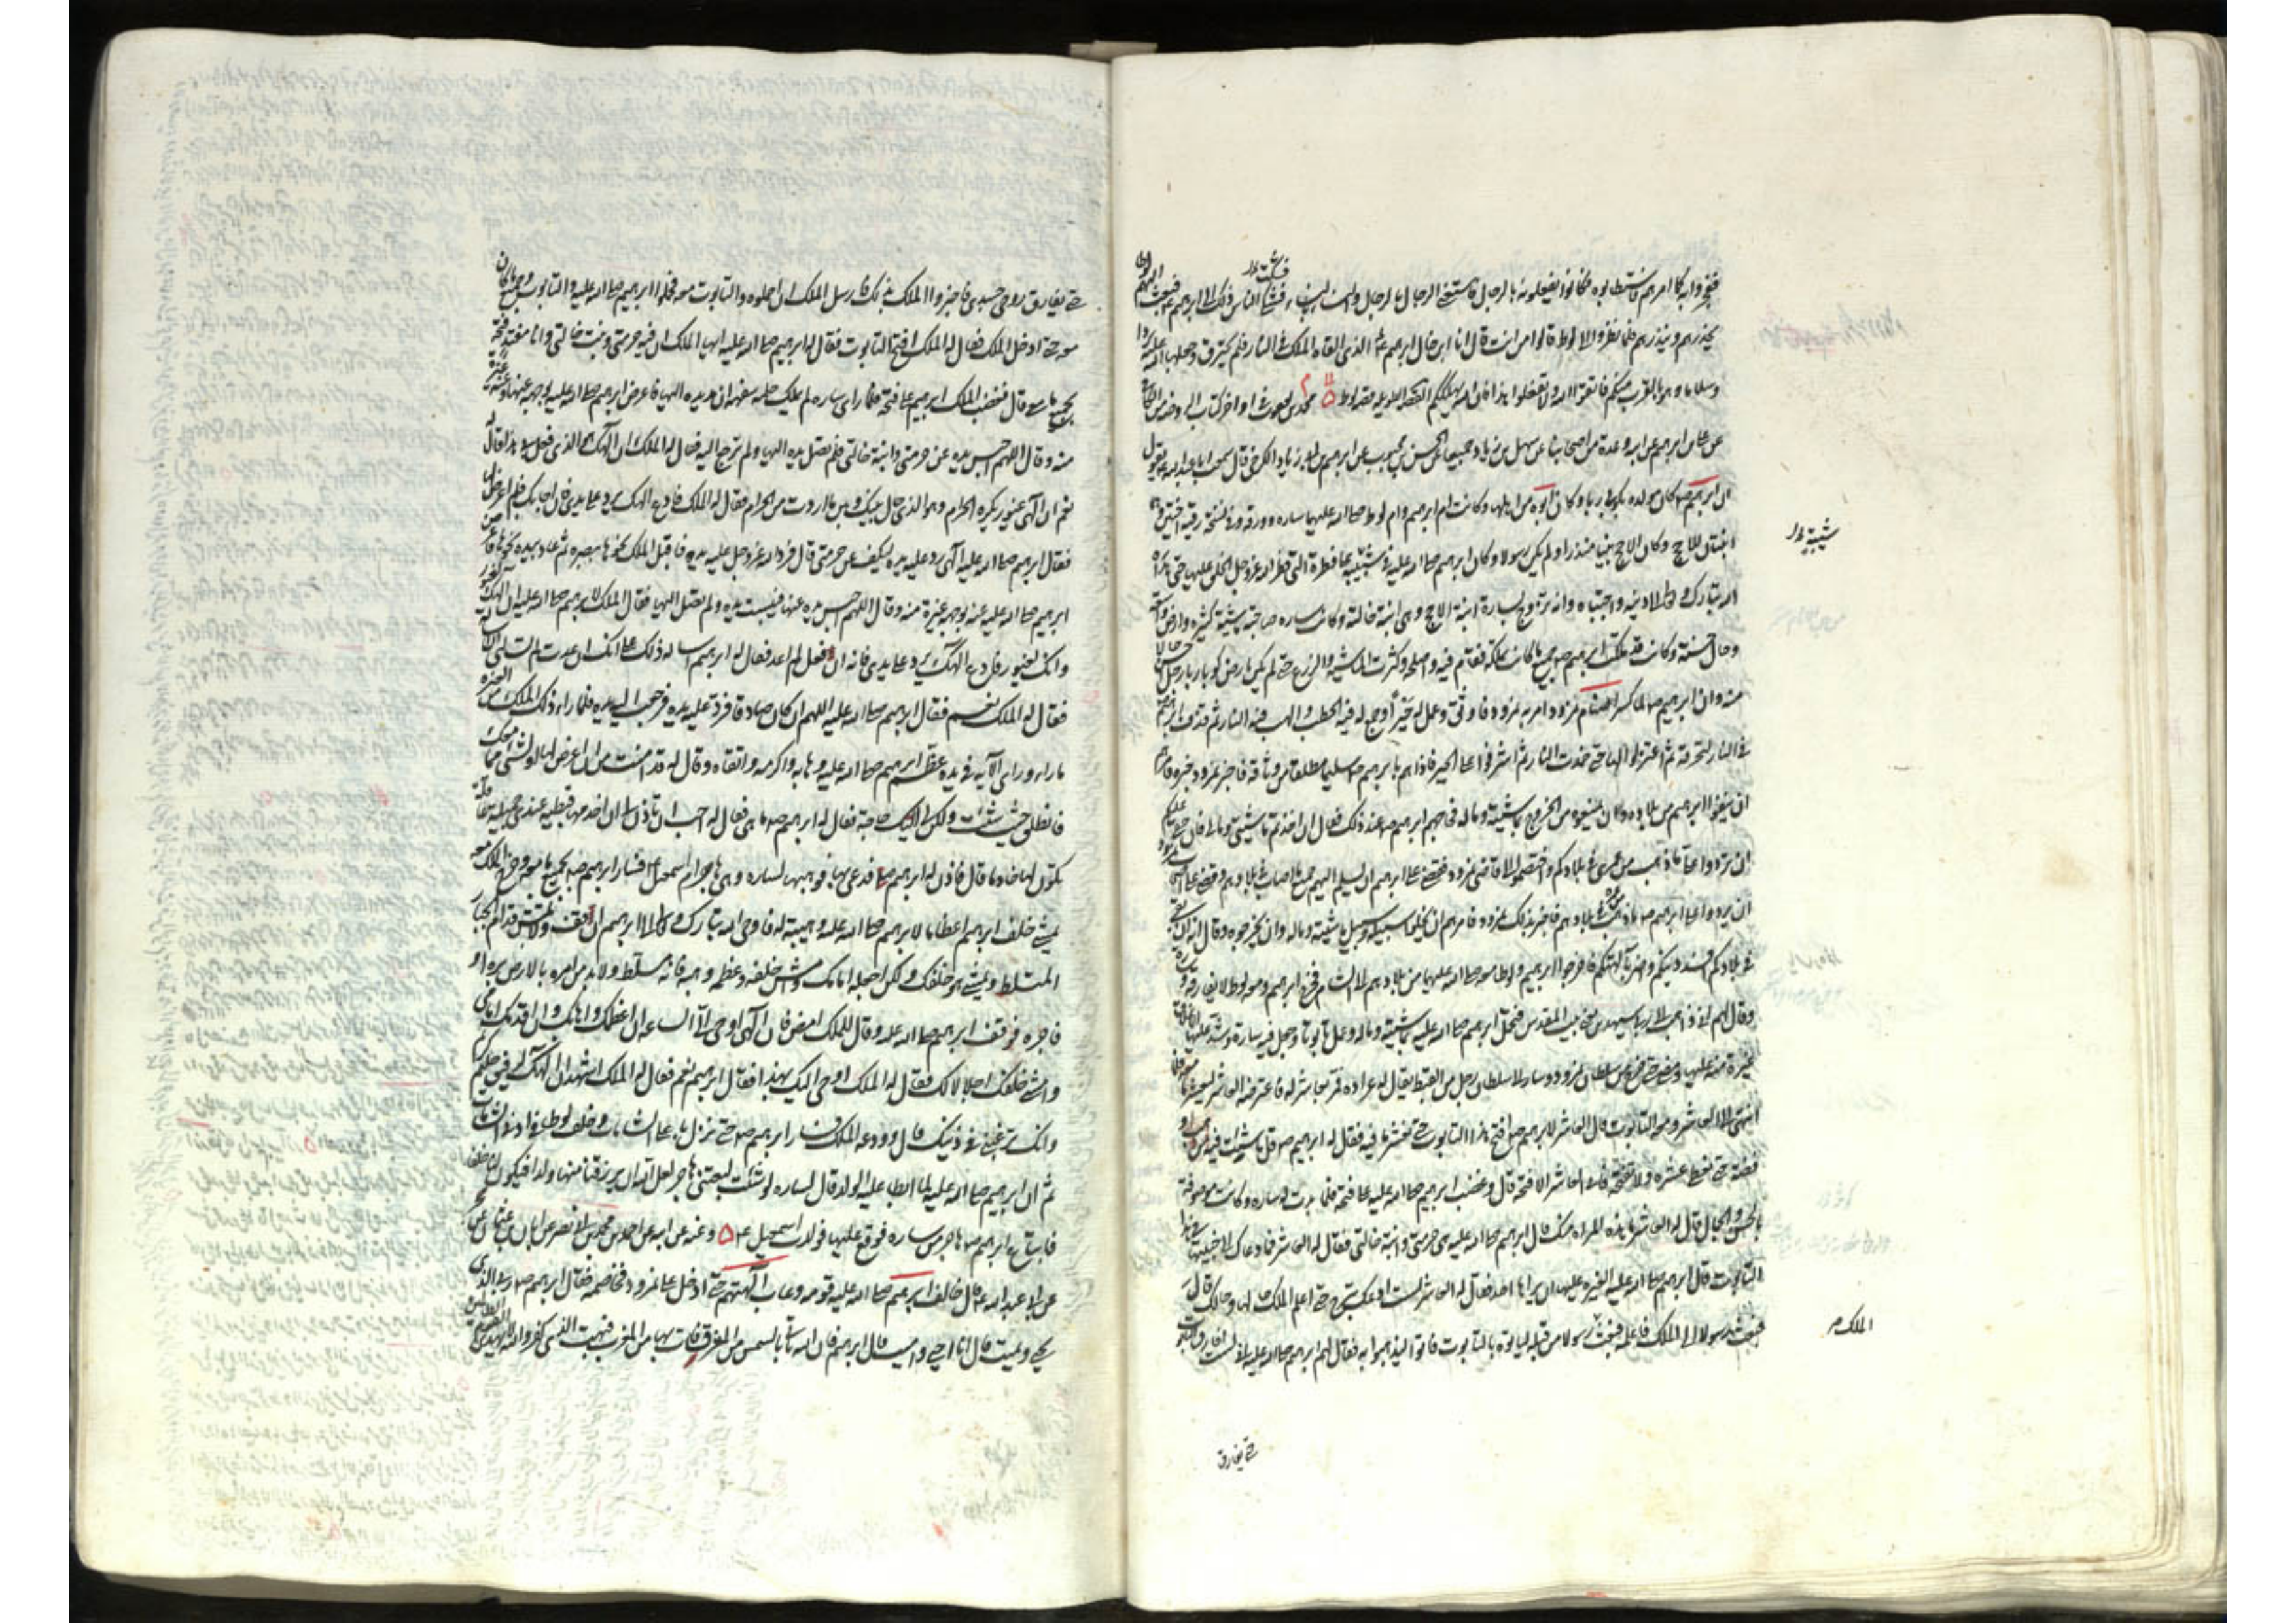 فنخروا به كما امرهم
يحذرهم وينذرهم فلما نظروا الى لوط قالوا من انت قال انا ابن خال ابرهيم الذى القاه الملك فى النار فلم يحترق وجعلها الله عليه بردا
وسلاما وهو بالقرب منكم فاتقوا الله ولا تفعلوا هذا فان الله يهلككم
عن على بن ابرهيم عن ابيه وعدة من اصحابنا عن سهل بن زياد جميعا عن الحسن بن محبوب عن ابرهيم بن ابى زياد الكرخى قال سمعت ابا عبد الله ع يقول
ان ابرهيم ص كان مولده بكوثى ربا وكان ابوه من اهلها وكانت ام ابرهيم وام لوط صلى الله عليهما ساره وورقه وفى نسخة رقيه اختين وهما
ابنتان للاحج وكان الاحج نبيا منذرا ولم يكن رسولا وكان ابرهيم صلى الله عليه فى شبيبته على الفطرة التى فطر الله عز وجل الخلق عليها حتى هداه
الله تبارك وتعالى الى دينه واجتباه وانه تزوج سارة ابنة لاحج وهى ابنة خالته وكانت ساره صاحبة ماشية كثيرة وارض واسعة
وحال حسنة وكانت قد ملكت ابرهيم ص جميع ما كانت تملكه فقام فيه واصلحه وكثرت الماشية والزرع حتى لم يكن بارض كوثى ربا رجل احسن حالا
منه وان ابرهيم ص لما كسر اصنام نمرود امر به نمرود فاوثق وعمل له حيرا وجمع له فيه الحطب والهب فيه النار ثم قذف ابرهيم ص
فى النار لتحرقه ثم اعتزلوها حتى خمدت النار ثم اشرفوا على الحير فاذا هم بابرهيم ص سليما مطلقا من وثاقه فاخبر نمرود خبره فامرهم
ان ينفوا ابرهيم من بلاده وان يمنعوه من الخروج بماشيته وماله فحاجهم ابرهيم ص عند ذلك فقال ان اخذتم ماشيتى ومالى فان حقى عليكم
ان تردوا على ما ذهب من عمرى فى بلادكم واختصموا الى قاضى نمرود فقضى على ابرهيم ان يسلم اليهم جميع ما اصاب فى بلادهم وقضى على اصحاب نمرود
ان يردوا على ابرهيم ص ما ذهب من عمره فى بلادهم فاخبر بذلك نمرود فامرهم ان يخلوا سبيله وسبيل ماشيته وماله وان يخرجوه وقال انه ان بقى
فى بلادكم افسد دينكم واضر بآلهتكم فاخرجوا ابرهيم ولوطا معه صلى الله عليهما من بلادهم الى الشام فخرج ابرهيم ومعه لوط لا يفارقه وساره
وقال لهم انى ذاهب الى ربى سيهدين يعنى بيت المقدس فتحمل ابرهيم صلى الله عليه بماشيته وماله وعمل تابوتا وجعل فيه سارة وشد عليها الاغلاق
غيرة منه عليها ومضى حتى خرج من سلطان نمرود وصار الى سلطان رجل من القبط يقال له عراره فمر بعاشر له فاعترضه العاشر ليعشر ما معه فلما
انتهى الى العاشر ومعه التابوت قال العاشر لابرهيم ص افتح هذا التابوت حتى نعشر ما فيه فقال له ابرهيم ص قل ما شئت فيه من ذهب او
فضة حتى نعطى عشره ولا نفتحه فابى العاشر الا فتحه قال وغضب ابرهيم صلى الله عليه على فتحه فلما بدت له ساره وكانت موصوفة
بالحسن والجمال قال له العاشر ما هذه المراه منك قال ابرهيم صلى الله عليه هى حرمتى وابنة خالتى فقال له العاشر فما دعاك الى ان خبيتها فى هذا
التابوت قال ابرهيم صلى الله عليه الغيرة عليها ان يراها احد فقال له العاشر لست ادعك تبرح حتى اعلم الملك حالها وحالك قال
فبعث رسولا الى الملك فاعلمه فبعث رسولا من قبله لياتوه بالتابوت فاتوا ليذهبوا به فقال لهم ابرهيم صلى الله عليه انى لست افارق التابوت
شبيبته
الملك
حتى يفارق
حتى يفارق روحى جسدى فاخبروا الملك بذلك فارسل الملك ان احملوه والتابوت معه فحملوا ابرهيم صلى الله عليه والتابوت وجميع ما كان
معه حتى ادخل الملك فقال له الملك افتح التابوت فقال له ابرهيم صلى الله عليه ايها الملك ان فيه حرمتى وبنت خالتى وانا مفتد فتحه
بجميع ما معى قال فغضب الملك ابرهيم على فتحه فلما راى ساره لم يملك حلمه سفهه ان مد يده اليها فاعرض ابرهيم صلى الله عليه بوجهه عنها وعنه غيرة
منه وقال اللهم احبس يده عن حرمتى وابنة خالتى فلم تصل يده اليها ولم ترجع اليه فقال له الملك ان الهك هو الذى فعل بى هذا فقال له
نعم ان الهى غيور يكره الحرام وهو الذى حال بينك وبين ما اردت من الحرام فقال له الملك فادع الهك يرد على يدى فان اجابك فلم اعرض لها
فقال ابرهيم صلى الله عليه الهى رد عليه يده ليكف عن حرمتى قال فرد الله عز وجل عليه يده فاقبل الملك نحوها ببصره ثم عاد بيده نحوها فاعرض
ابرهيم صلى الله عليه عنه بوجهه غيرة منه وقال اللهم احبس يده عنها فيبست يده ولم تصل اليها فقال الملك لابرهيم صلى الله عليه ان الهك لغيور
وانك لغيور فادع الهك يرد على يدى فانه ان فعل لم اعد فقال له ابرهيم اساله ذلك على انك ان عدت لم تسالنى ان اساله
فقال له الملك نعم فقال ابرهيم صلى الله عليه اللهم ان كان صادقا فرد عليه يده فرجعت اليه يده فلما راى ذلك الملك من الغيرة
ما راى وراى الآية فى يده عظم ابرهيم صلى الله عليه وهابه واكرمه واتقاه وقال له قد امنت من ان اعرض لها او لشىء مما معك
فانطلق حيث شئت ولكن لى اليك حاجة فقال له ابرهيم ص ما هى فقال له احب ان تاذن لى ان اخدمها قبطية عندى جميلة عاقلة
تكون لها خادما قال فاذن له ابرهيم ص فدعى بها فوهبها لساره وهى هاجر ام اسمعيل فسار ابرهيم ص بجميع ما معه وخرج الملك معه
يمشى خلف ابرهيم اعظاما لابرهيم صلى الله عليه وهيبة له فاوحى الله تبارك وتعالى الى ابرهيم ان قف ولا تمش قدام الجبار
المتسلط ويمشى هو خلفك ولكن اجعله امامك وامش خلفه وعظمه وهبه فانه مسلط ولا بد من امره بالارض بره او
فاجره فوقف ابرهيم صلى الله عليه وقال للملك امض فان الهى اوحى الى الساعه ان اعظمك واهابك وان اقدمك امامى
وامشى خلفك اجلالا لك فقال له الملك اوحى اليك بهذا فقال ابرهيم نعم فقال له الملك اشهد ان الهك لرفيق حليم كريم
وانك ترغبنى فى دينك قال وودعه الملك فسار ابرهيم ص حتى نزل باعلى الشامات وخلف لوطا فى ادنى الشامات
ثم ان ابرهيم صلى الله عليه لما ابطا عليه الولد قال لساره لو شئت لبعتنى هاجر لعل الله ان يرزقنا منها ولدا فيكون لنا خلفا
فابتاع ابرهيم ص هاجر من ساره فوقع عليها فولدت اسمعيل ع وعنه عن ابيه عن احمد بن محمد بن ابى نصر عن ابان بن عثمن عن حجر
عن ابى عبد الله ع قال خالف ابرهيم صلى الله عليه قومه وعاب آلهتهم حتى ادخل على نمرود فخاصمه فقال ابرهيم ص ربى الذى
يحيى ويميت قال انا احيى واميت قال ابرهيم فان الله ياتى بالشمس من المشرق فات بها من المغرب فبهت الذى كفر والله لا يهدى القوم الظالمين